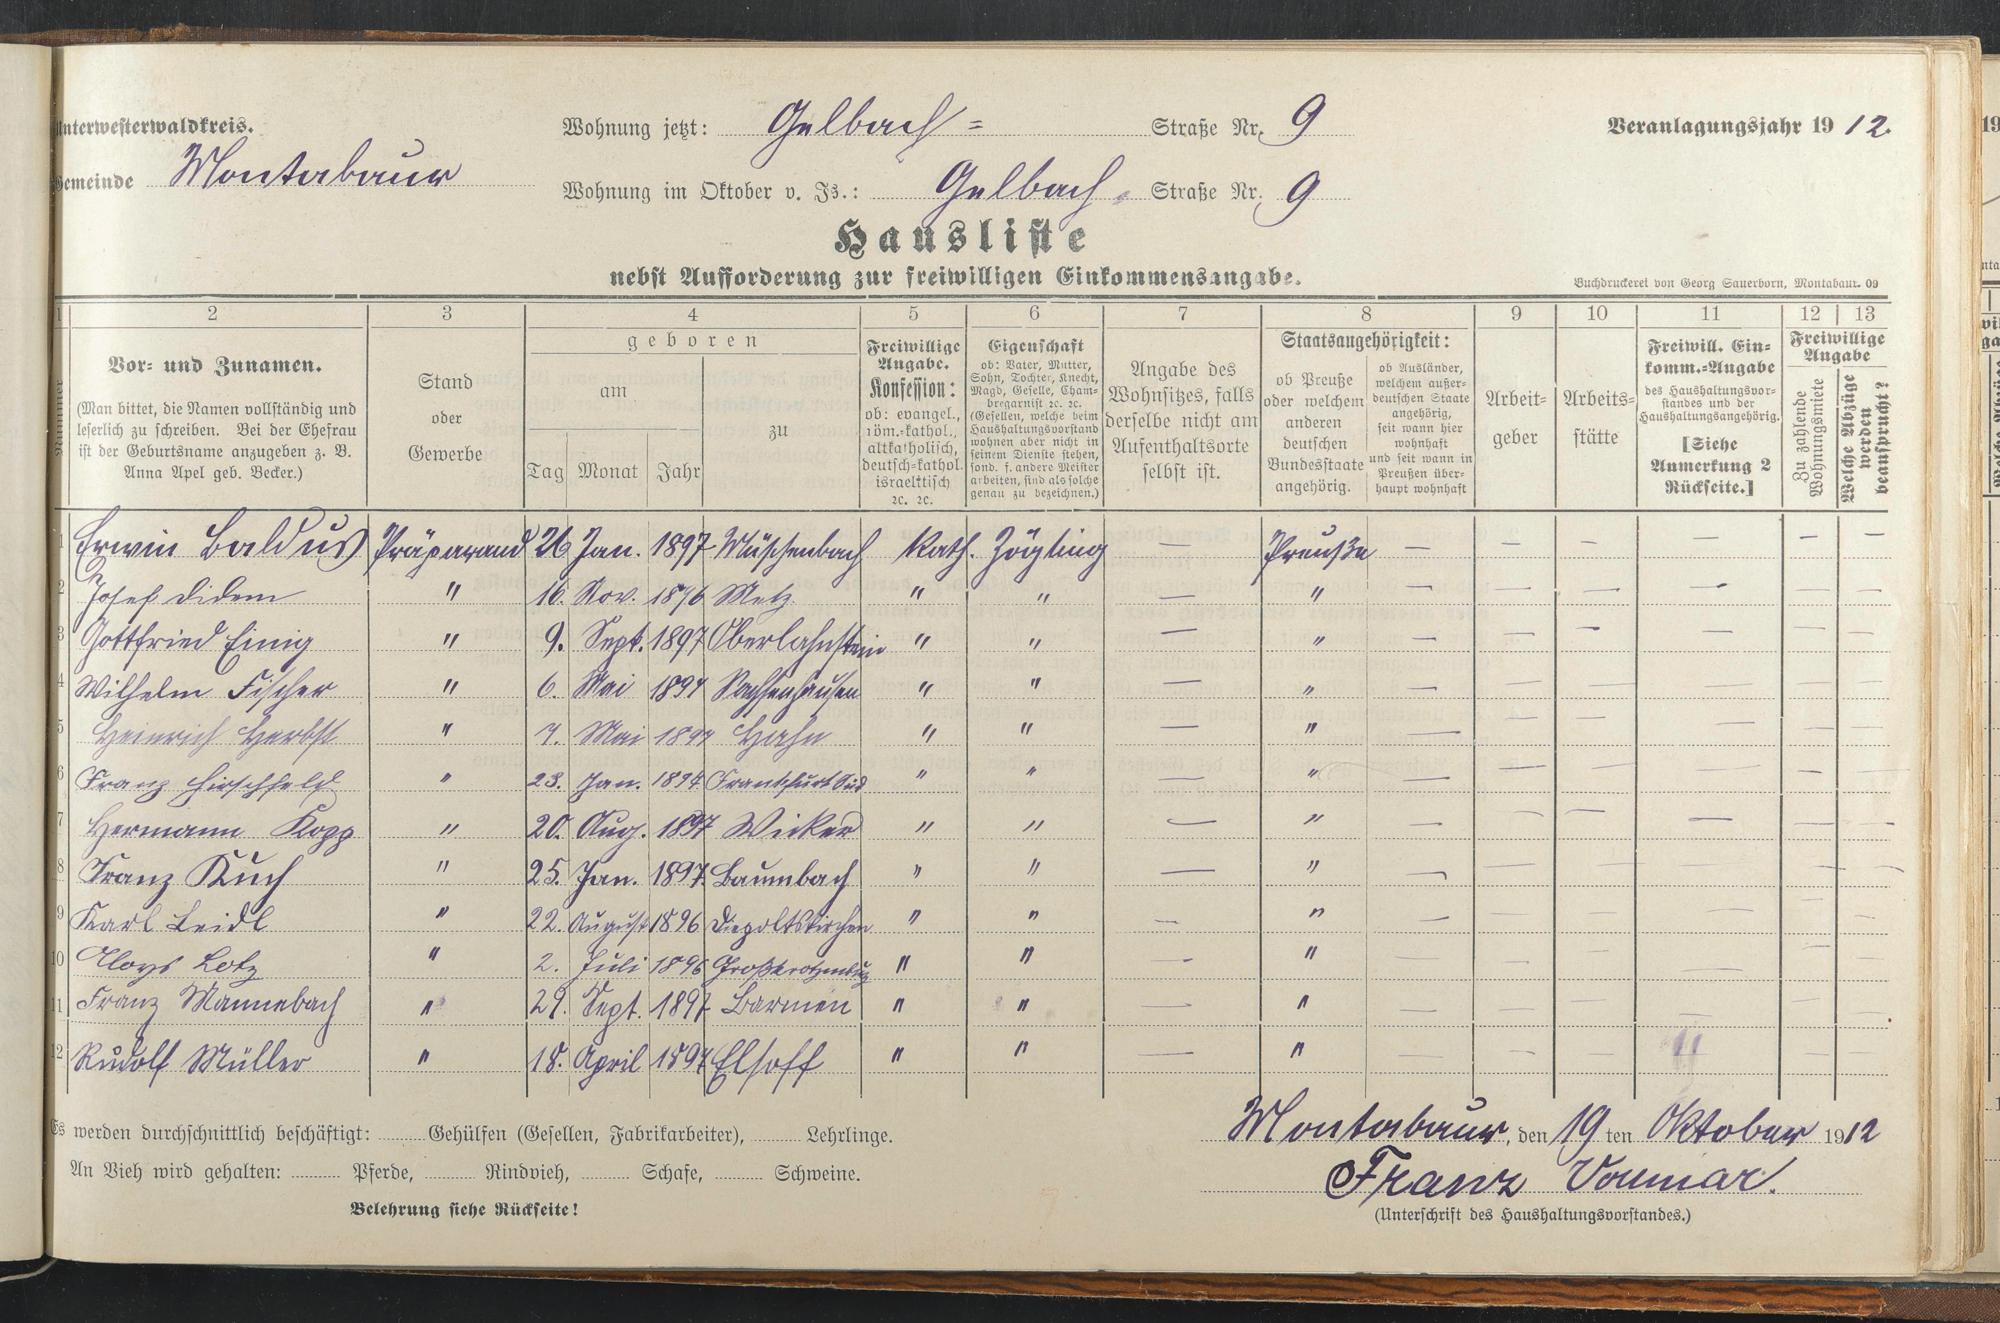 Unterwesterwaldkreis.
Gemeinde Montabaur
Wohnung jetzt: Gelbach= Straße Nr. 9
Wohnung im Oktober v. Js.: Gelbach- Straße Nr. 9
Veranlagungsjahr 1912.
Hausliste
nebst Aufforderung zur freiwilligen Einkommensangabe.
Buchdruckerei von Georg Sauerborn, Montabaur. 09
1 2 3 4 5 6 7 8 9 10 11 12 13
Nummer
Vor= und Zunamen.
(Man bittet, die Namen vollständig und
leserlich zu schreiben. Bei der Ehefrau
ist der Geburtsname anzugeben z. B.
Anna Apel geb. Becker.)
Stand
oder
Gewerbe
geboren
am
Tag Monat Jahr
zu
Freiwillige
Angabe.
Konfession:
ob: evangel.,
röm.=kathol.,
altkatholisch,
deutsch=kathol.
israelitisch
ꝛc. ꝛc.
Eigenschaft
ob: Vater, Mutter,
Sohn, Tochter, Knecht,
Magd, Geselle, Cham-
bregarnist ꝛc. ꝛc.
(Gesellen, welche beim
Haushaltungsvorstand
wohnen aber nicht in
seinem Dienste stehen,
sond. f. andere Meister
arbeiten, sind als solche
genau zu bezeichnen.)
Angabe des
Wohnsitzes, falls
derselbe nicht am
Aufenthaltsorte
selbst ist.
Staatsangehörigkeit:
ob Preuße
oder welchem
anderen
deutschen
Bundesstaate
angehörig.
ob Ausländer,
welchem außer-
deutschen Staate
angehörig,
seit wann hier
wohnhaft
und seit wann in
Preußen über-
haupt wohnhaft
Arbeit-
geber
Arbeits-
stätte
Freiwill. Ein-
komm.=Angabe
des Haushaltungsvor-
standes und der
Haushaltungsangehörig.
[Siehe
Anmerkung 2
Rückseite.]
Freiwillige
Angabe
Zu zahlende
Wohnungsmiete
Welche Abzüge
werden
beansprucht?
1 Erwin Baldus Präparand 26 Jan. 1897 Müschenbach Kath. Zögling — Preuße — — — — — —
2 Josef Didem " 16. Nov. 1896 Metz " " — " — — — — — —
3 Gottfried Einig " 9. Sept. 1897 Oberlahnstein " " — " — — — — — —
4 Wilhelm Fischer " 6. Mai 1897 Sachsenhausen " " — " — — — — — —
5 Heinrich Herbst " 7. Mai 1897 Hahn " " — " — — — — — —
6 Franz Hirschfeld " 23. Jan. 1897 Frankfurt Süd " " — " — — — — — —
7 Hermann Kopp " 20. Aug. 1897 Wicker " " — " — — — — — —
8 Franz Kuch " 25. Jan. 1897 Baumbach " " — " — — — — — —
9 Karl Leidl " 22. August 1896 Diepoltskirchen " " — " — — — — — —
10 Aloys Lotz " 2. Juli 1896 Großkrotzenburg " " — " — — — — — —
11 Franz Mannebach " 29. Sept. 1897 Barmen " " — " — — — — — —
12 Rudolf Müller " 18. April 1897 Elsoff " " — " — — — — —
Es werden durchschnittlich beschäftigt: Gehülfen (Gesellen, Fabrikarbeiter), Lehrlinge.
An Vieh wird gehalten: Pferde, Rindvieh, Schafe, Schweine.
Belehrung siehe Rückseite!
Montabaur, den 19 ten Oktober 1912
Franz
(Unterschrift des Haushaltungsvorstandes.)